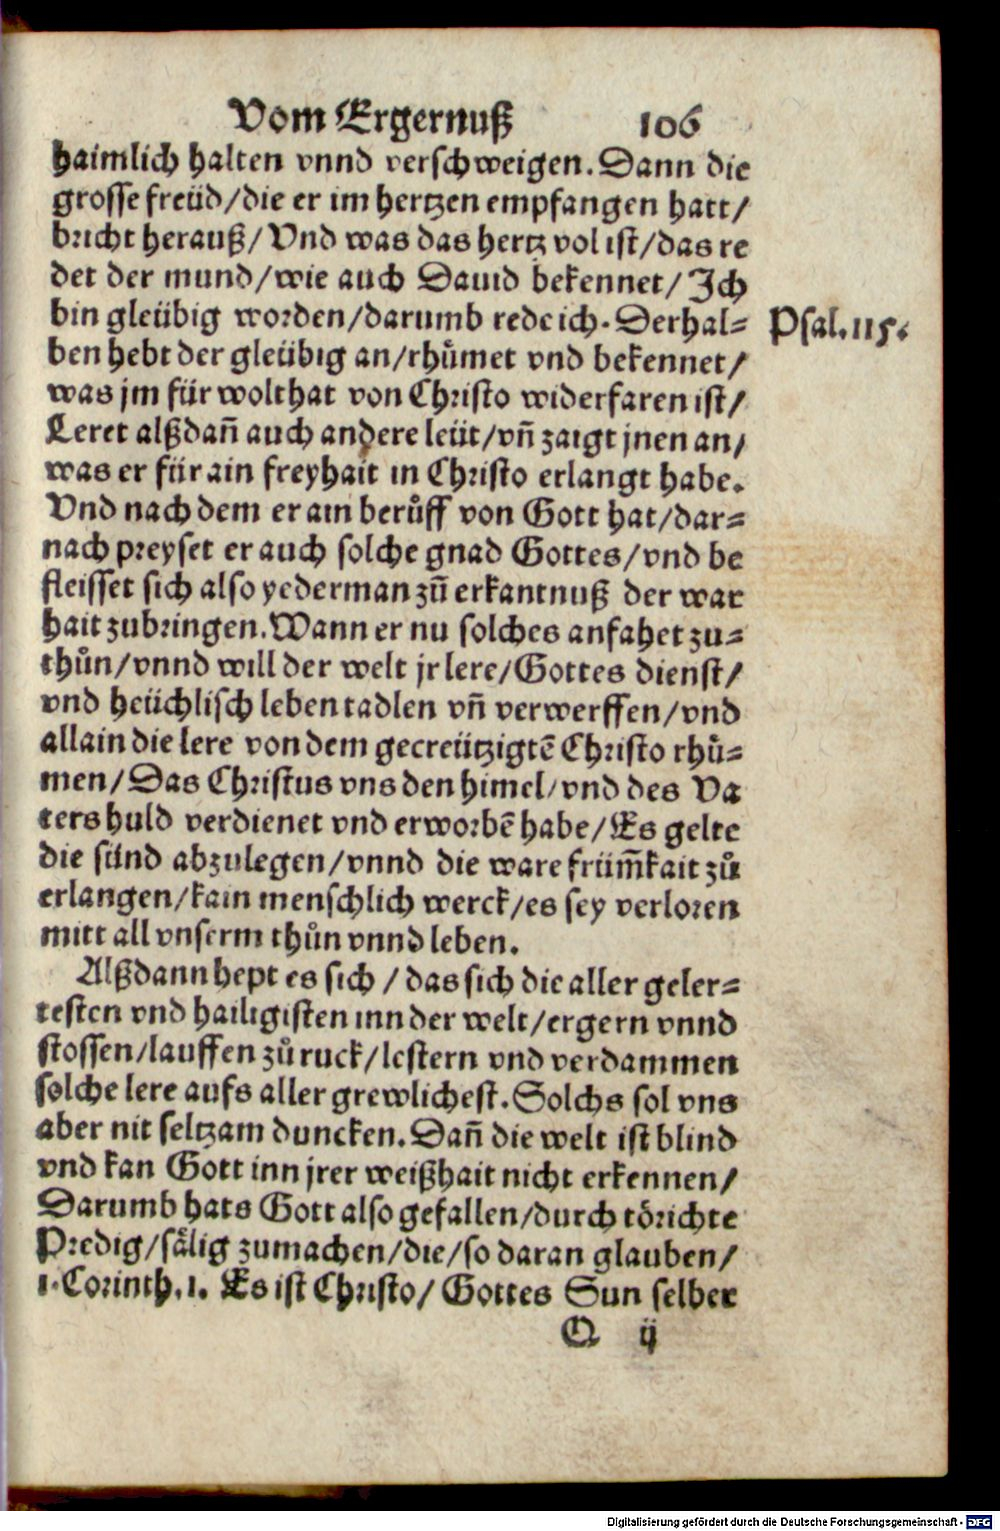 Vom Ergernuß 106
haimlich halten vnnd verschweigen. Dann die
grosse freüd/die er im hertzen empfangen hatt/
bricht herauß/ Vnd was das hertz vol ist/das re
det der mund/wie auch Dauid bekennet/ Ich
bin gleübig worden/darumb rede ich. Derhal=
Psal. 115.
ben hebt der gleübig an/rhůmet vnd bekennet/
was jm für wolthat von Christo widerfaren ist/
Leret alßdañ auch andere leüt/vñ zaigt jnen an/
was er für ain freyhait in Christo erlangt habe.
Vnd nach dem er ain berůff von Gott hat/dar=
nach preyset er auch solche gnad Gottes/vnd be
fleisset sich also yederman zů erkantnuß der war
hait zubringen. Wann er nu solches anfahet zu=
thůn/vnnd will der welt jr lere/Gottes dienst/
vnd heüchlisch leben tadlen vñ verwerffen/vnd
allain die lere von dem gecreützigtē Christo rhů=
men/Das Christus vns den himel/vnd des Va
ters huld verdienet vnd erworbē habe/Es gelte
die sünd abzulegen/vnnd die ware früm̃kait zů
erlangen/kain menschlich werck/es sey verloren
mitt all vnserm thůn vnnd leben.
Alßdann hept es sich / das sich die aller geler=
testen vnd hailigisten inn der welt/ergern vnnd
stossen/lauffen zů ruck/lestern vnd verdammen
solche lere aufs aller grewlichest. Solchs sol vns
aber nit seltzam duncken. Dañ die welt ist blind
vnd kan Gott inn jrer weißhait nicht erkennen/
Darumb hats Gott also gefallen/durch törichte
Predig/sälig zumachen/die/so daran glauben/
1. Corinth. 1. Es ist Christo/ Gottes Sun selber
Q ij
Digitalisierung gefördert durch die Deutsche Forschungsgemeinschaft - DFG